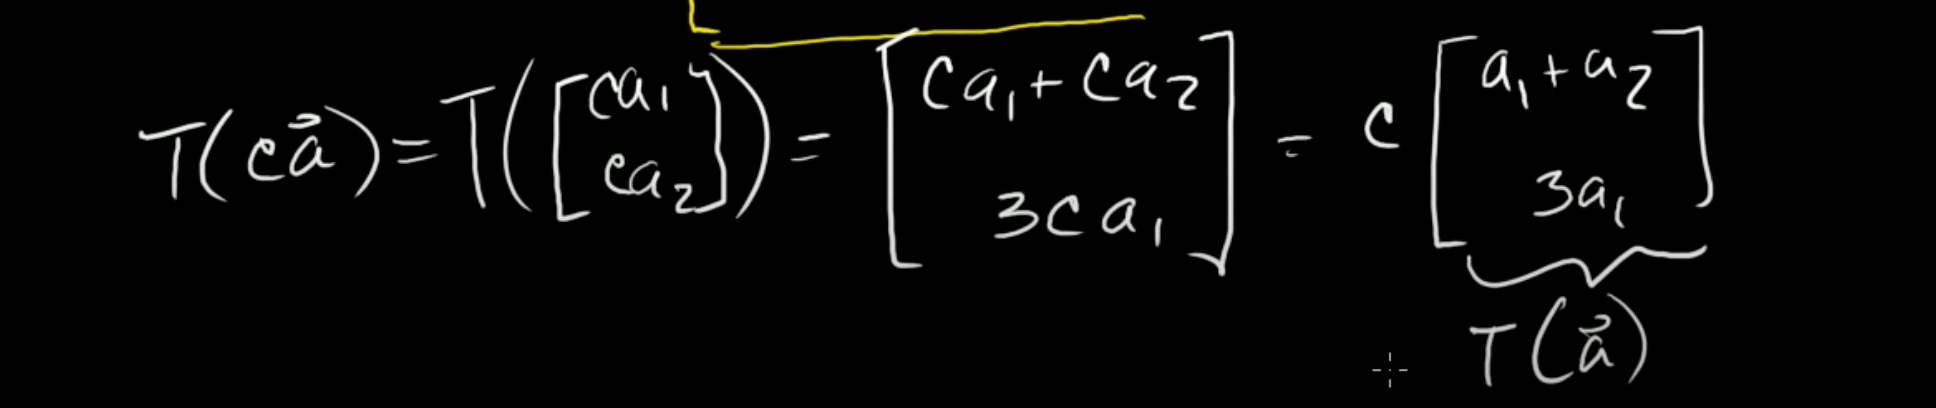 T(ca⃗) = T([ca₁ ca₂]) = [ca₁ + ca₂ 3ca₁] = c [a₁ + a₂ 3a₁]
T(a⃗)